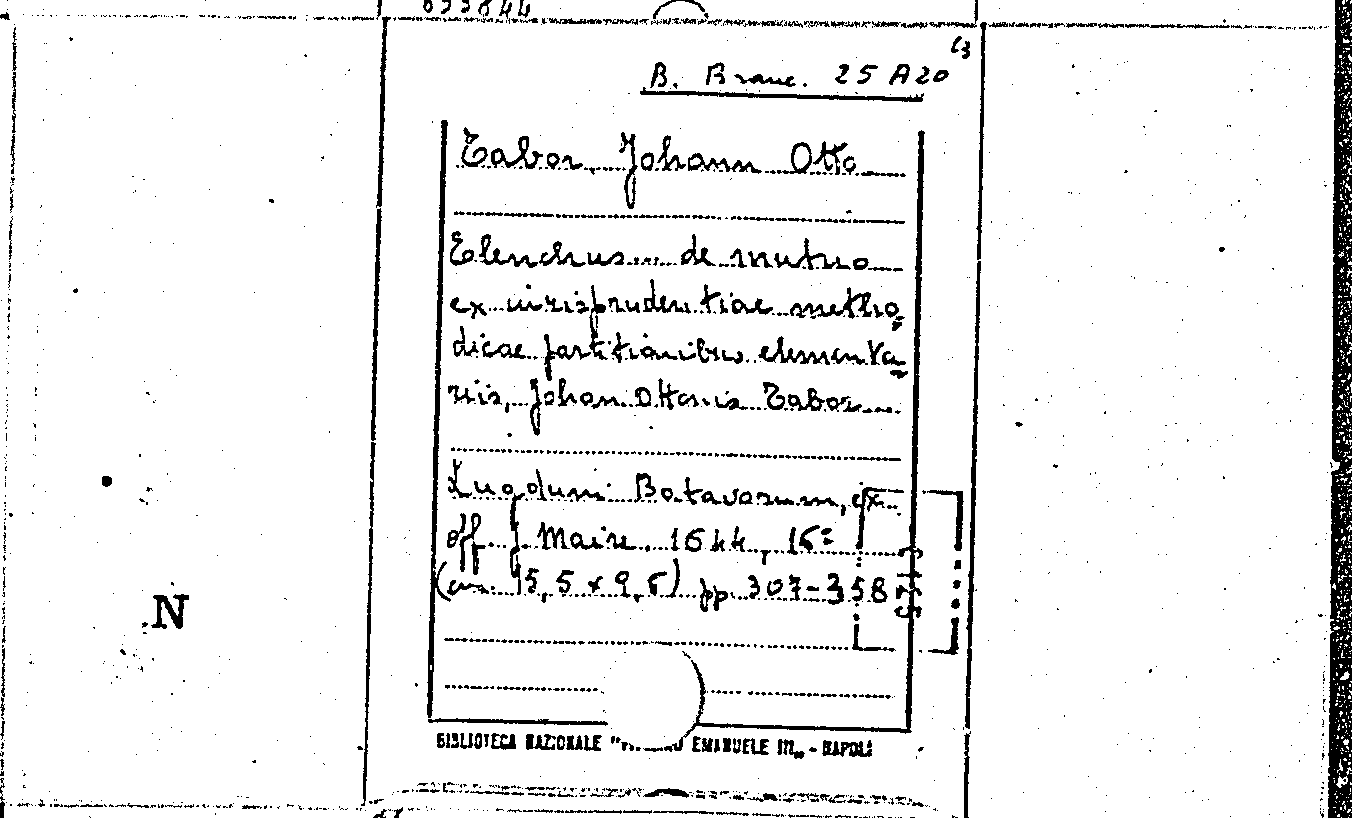 B. Branc. 25 A20
Tabor, Johann Otto
Elenchus ... de mutuo
ex iurisprudentiae metho=
dicae partitionibus elementa=
riis, Johan Ottonis Tabor ...
Lugduni Batavorum, ex
off. J. Maire, 1644, 16º
(cm. 15,5 x 9,5) pp. 307-358
N
BIBLIOTECA NAZIONALE EMANUELE III„ - NAPOLI